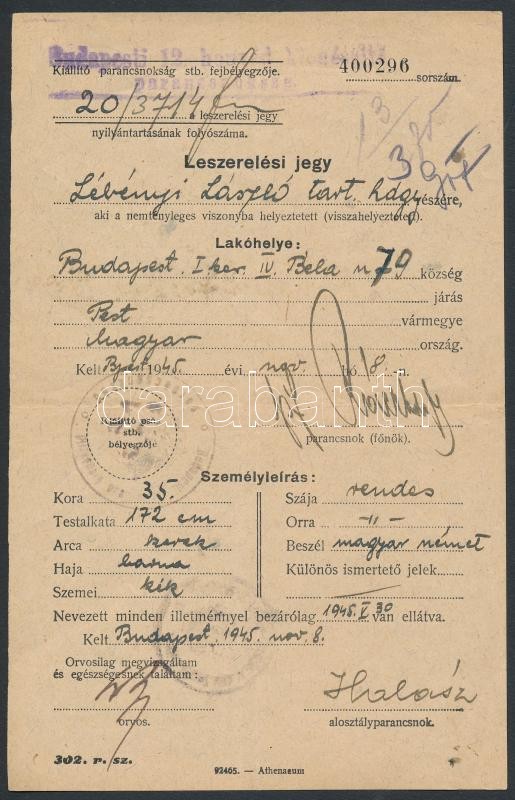 Kiállító parancsnokság stb. fejbélyegzője. 400296 sorszám.
20/3714 a leszerelési jegy
nyilvántartásának folyószáma.
Leszerelési jegy
Lébényi László tart. hdgy részére,
aki a nemtényleges viszonyba helyeztetett (visszahelyeztetett).
Lakóhelye:
Budapest. I ker. IV. Béla u 79 község
járás
Pest vármegye
Magyar ország.
Kelt Bpest 1945. évi nov. hó 8. n.
darabanth
Kiállító psság
stb.
bélyegzője
parancsnok (főnök).
Személyleírás:
Kora 35.
Testalkata 172 cm
Arca kerek
Haja barna
Szemei kék
Szája rendes
Orra -„-
Beszél magyar német
Különös ismertető jelek
Nevezett minden illetménnyel bezárólag 1945. V 30 van ellátva.
Kelt. Budapest. 1945. nov. 8.
Orvosilag megvizsgáltam
és egészségesnek találtam:
orvos.
Halász
alosztályparancsnok.
302. r. sz.
92465. — Athenaeum